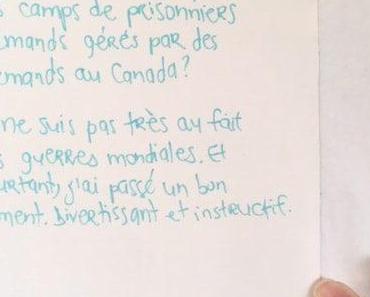 camps de prisonniers
mands gérés par des
emands au Canada?
ne suis pas très au fait
s guerres mondiales. Et
urtant, j'ai passé un bon
ment. Divertissant et instructif.